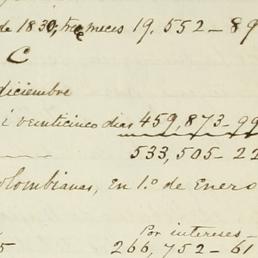 de 1830, tres meces 19.552-89
C
diciembre
i veinticinco dias 459,873-99
533,505-22
olombianas, en 1.º de Enero
Por intereses-
5 266,752-61